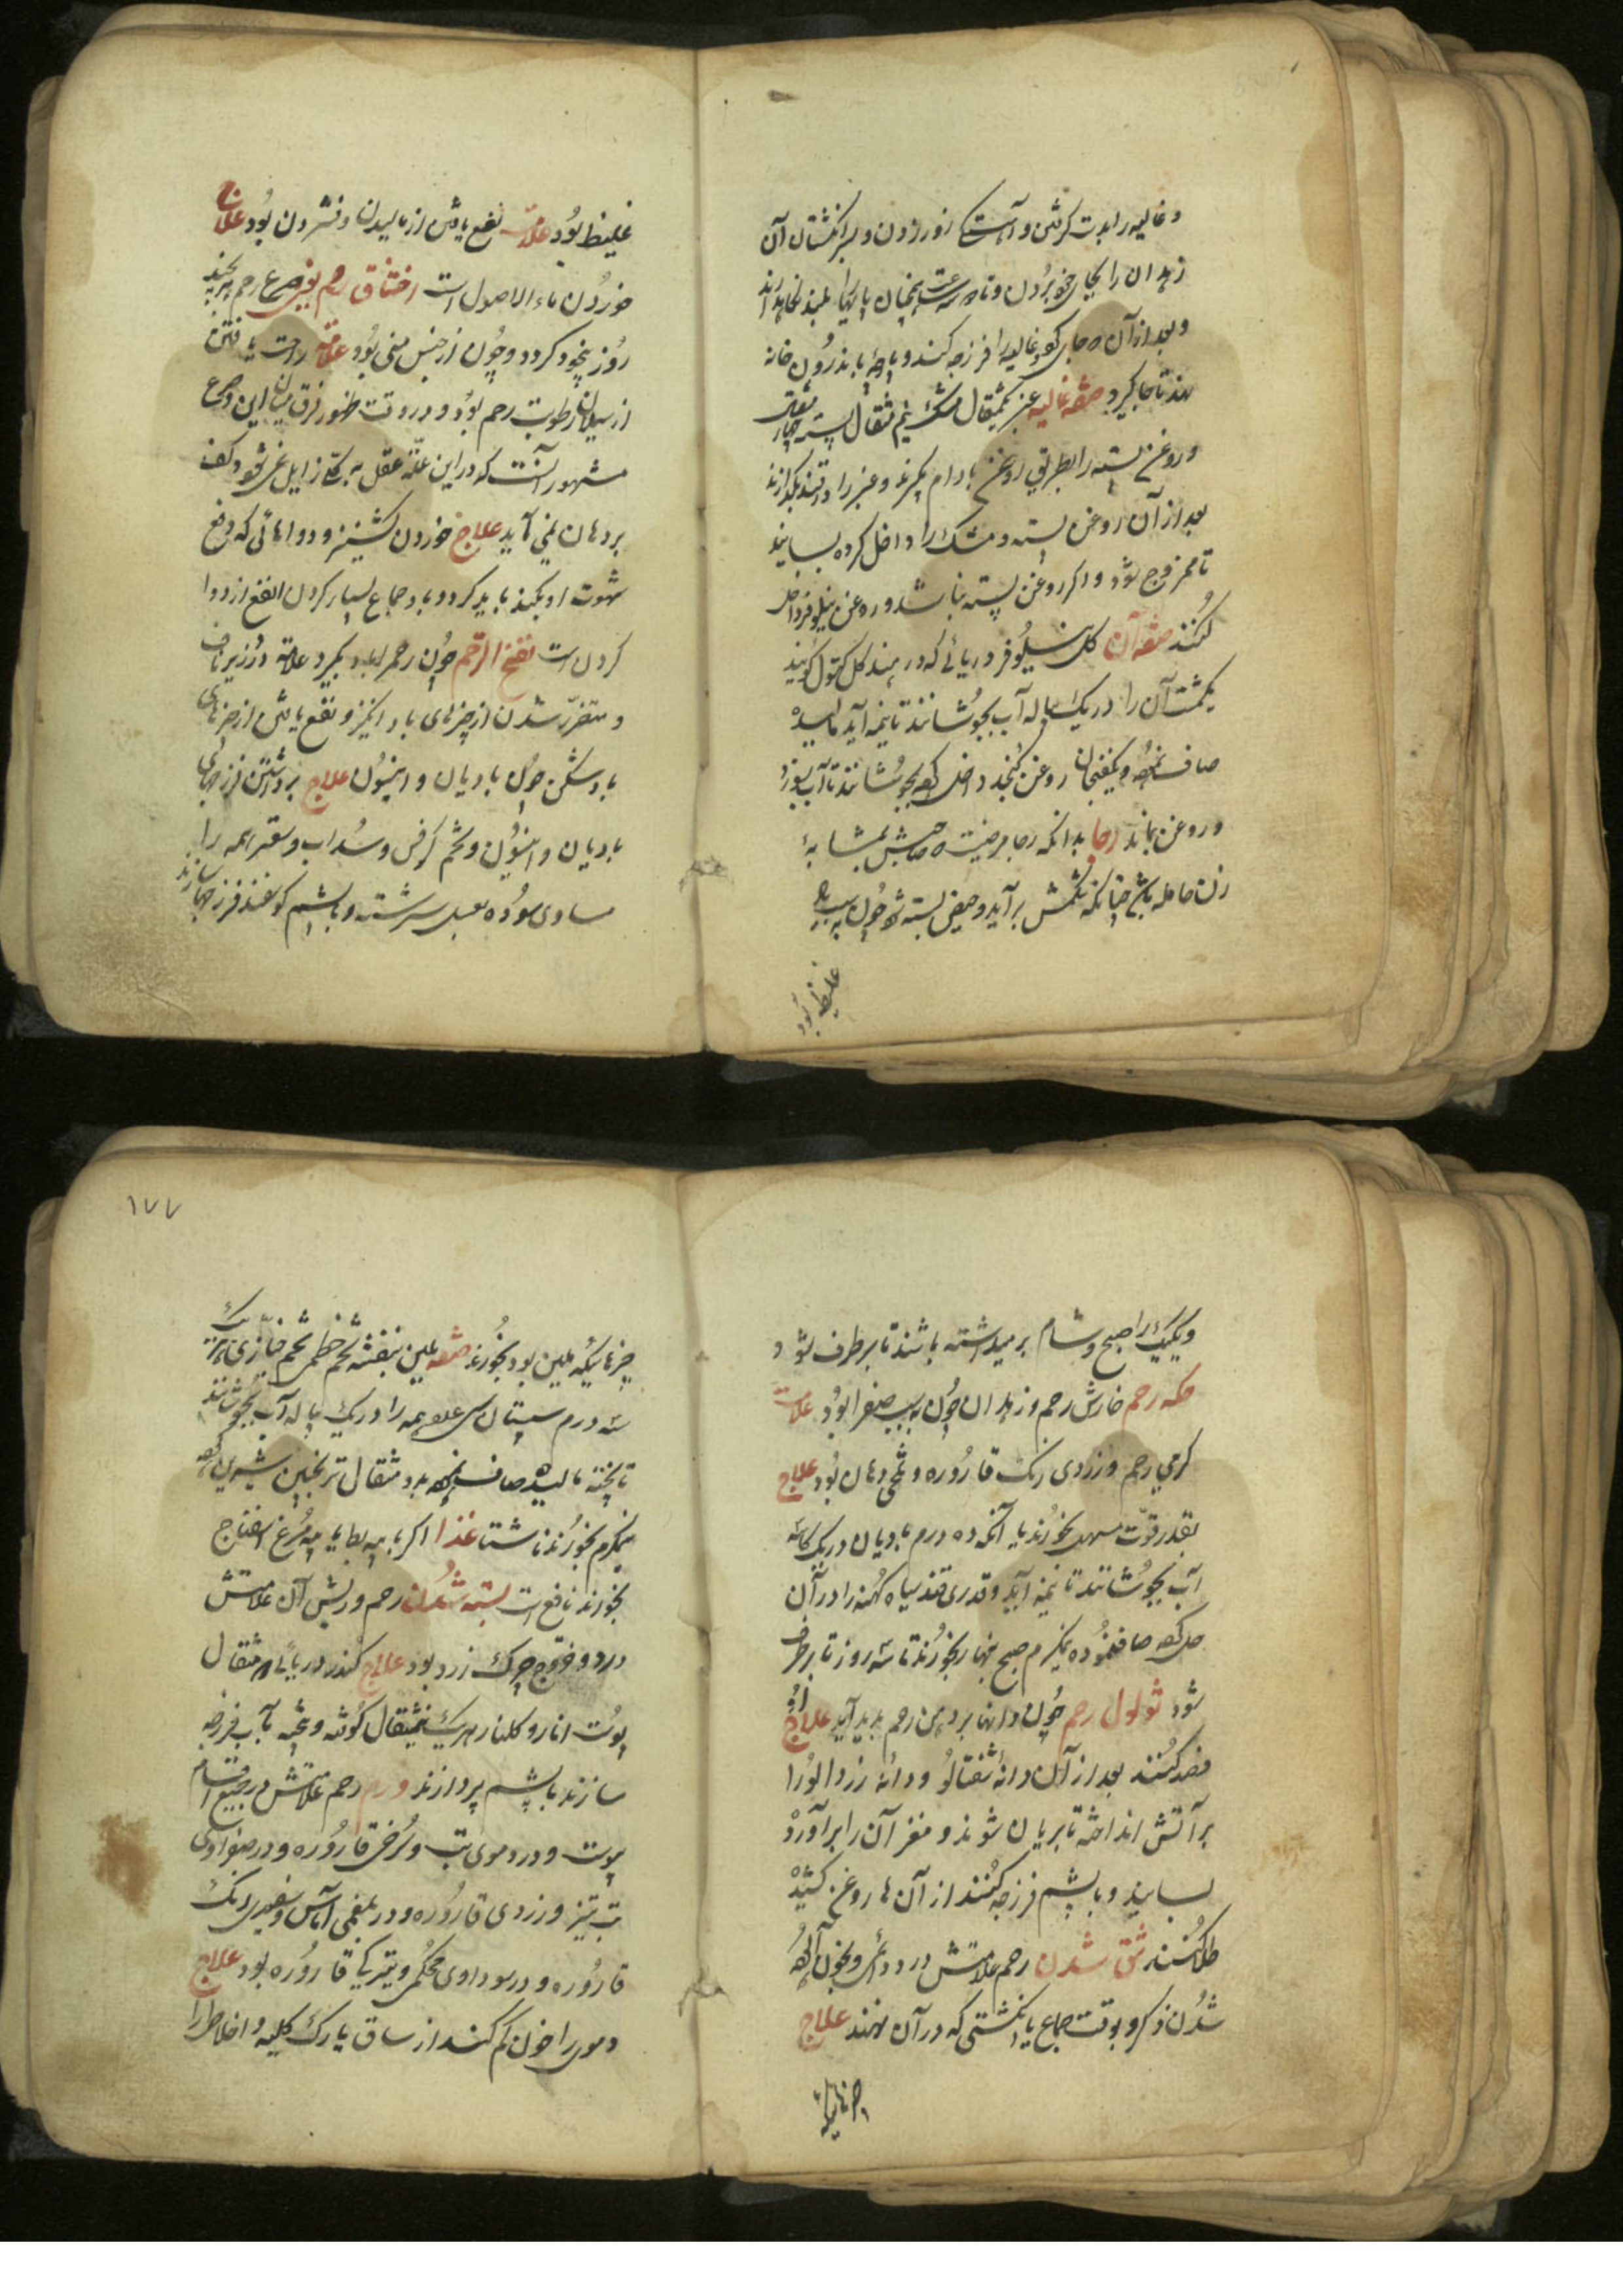 وغالیه را بدست گرفتن و آهستگی زور زدن و بسر انگشتان آن
زهدان را بجای خود بردن و تا سه ساعت همچنان پایها بلند نگاهدارند
و بعد از آن غالیه را فرزجه کنند و پارچهٔ باندرون خانه
نهند تا جا گیرد صفة غالیه عنبر یکمثقال مشک نیم مثقال پسته چهار مثقال
و روغن پسته را بطریق روغن بادام بگیرند و عنبر را در بگدازند
بعد از آن روغن پسته و مشک را داخل کرده بسایند
تا ممزوج شود و اگر روغن پسته نباشد روغن نیلوفر داخل
کنند صفة آن گل نیلوفر دریائی که در هند گل کنول گویند
یکمشت آن را در یک پیاله آب بجوشانند تا نیمه آید مالیده
صاف نموده و یکفنجان روغن کنجد داخل کرده بجوشانند تا آب بسوزد
و روغن بماند رجا بدانکه رجا مرضیست صاحبش بمشابهٔ
زن حامله باشد چنانکه شکمش برآید و حیض بسته شود چون بسبب باد
غلیظ بود
غلیظ بود علامت نفع یافتن از مالیدن و فشردن بود علاج
خوردن ماء الاصول است اختناق رحم یعنی صرع رحم هر چند
روز بیخود گردد و چون از حبس منی بود علامة راحت یافتن
از سیلان رطوبت رحم بود و در وقت ظهور فرق میان این و صرع
مشهور آنست که در این علة عقل به یکبار زایل نمی شود و کف
بر دهان نمی آید علاج خوردن کشنیز و دواهائی که دفع
شهوت او بکند باید کرد و باید جماع بسیار کردن انفع از دوا
کردن است نفخ الرحم چون رحم را باد بگیرد علامة درد زیر ناف
و متضرر شدن از چیزهای باد انگیز و نفع یافتن از چیزهای
باد شکن چون بادیان و انیسون علاج برداشتن فرزجهای
بادیان و انیسون و تخم کرفس و سداب و سعتر همه را
مساوی سوده بعسل سرشته و با پشم گوسفند فرزجها سازند
و یکیک را صبح و شام برمیداشته باشند تا برطرف شود
حکه رحم خارش رحم و زهدان چون بسبب صفرا بود علامت
گرمی رحم و زردی رنگ قاروره و تلخی دهان بود علاج
بقدر قوّت مسهل بخورند یا آنکه ده درم بادیان در یک کاسه
آب بجوشانند تا نیمه آید و قدری قند سیاه کهنه را در آن
حل کرده صاف نموده نیمگرم صبح نهار بخورند تا سه روز تا برطرف
شود ثولول رحم چون دانها بر دهن رحم پدید آید علاج اوّل
فصد کنند بعد از آن دانهٔ شفتالو و دانه زردالو را
بر آتش انداخته تا بریان شوند و مغز آن را برآورده
بسایند و با پشم فرزجه کنند از آن ها روغن کشیده
طلا کنند شق شدن رحم علامتش درد دائمی و بخون آلوده
شدن ذکر و بوقت جماع یا انگشتی که در آن نهند علاج
چیزهائیکه
۱۷۷
چیزهائیکه ملین بود بخورند صفة ملین بنفشه تخم خطمی تخم خبازی هریک
سه درم سپستان سی عدد همه را در یک پیاله آب بجوشانند
تا پخته مالیده صاف نموده بده مثقال ترنجبین شیرین کرده
نیمگرم بخورند ناشتا غذا اگر با پیه بط یا پیه مرغ اسفناج
بخورند نافع است بسته شدن رحم و ریش آن علامتش
درد و خروج چرک زرد بود علاج کندر دریائی مثقال
پوست انار و گلنار هریک نیمثقال کوفته و بیخته بآب فرزجه
سازند با پشم بردارند ورم رحم علامتش در جمیع اقسام
پوست و در دموی تب و سُرخی قاروره و در صفراوی
تب تیز و زردی قاروره و در بلغمی آماس و سفیدی رنگ
قاروره و در سوداوی محکمی و تیرگی قاروره بود علاج
دموی را خون کم کنند از ساق یا رگ کلیه و اخلاط را